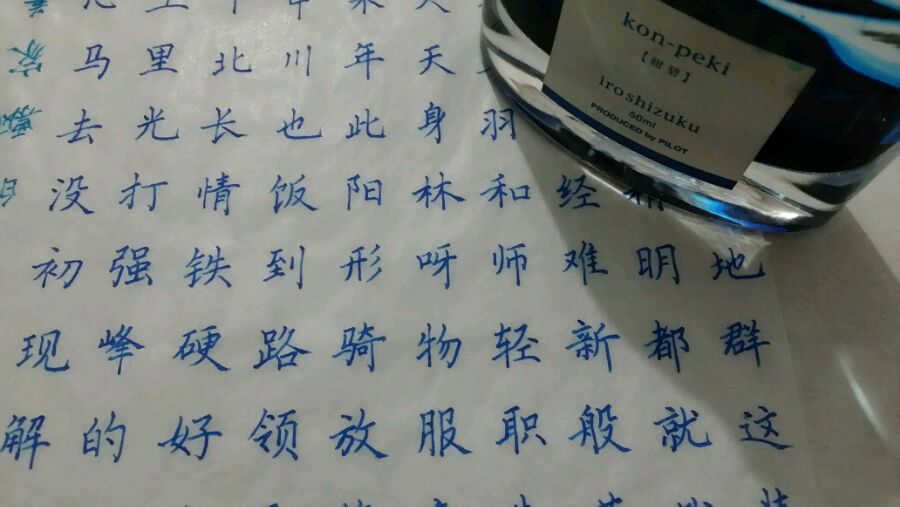 马里北川年天
去光长也此身羽
没打情饭阳林和经精
初强铁到形呀师难明地
现峰硬路骑物轻新都群
解的好领放服职般就这
kon-peki
【紺碧】
iroshizuku
50ml
PRODUCED by PILOT